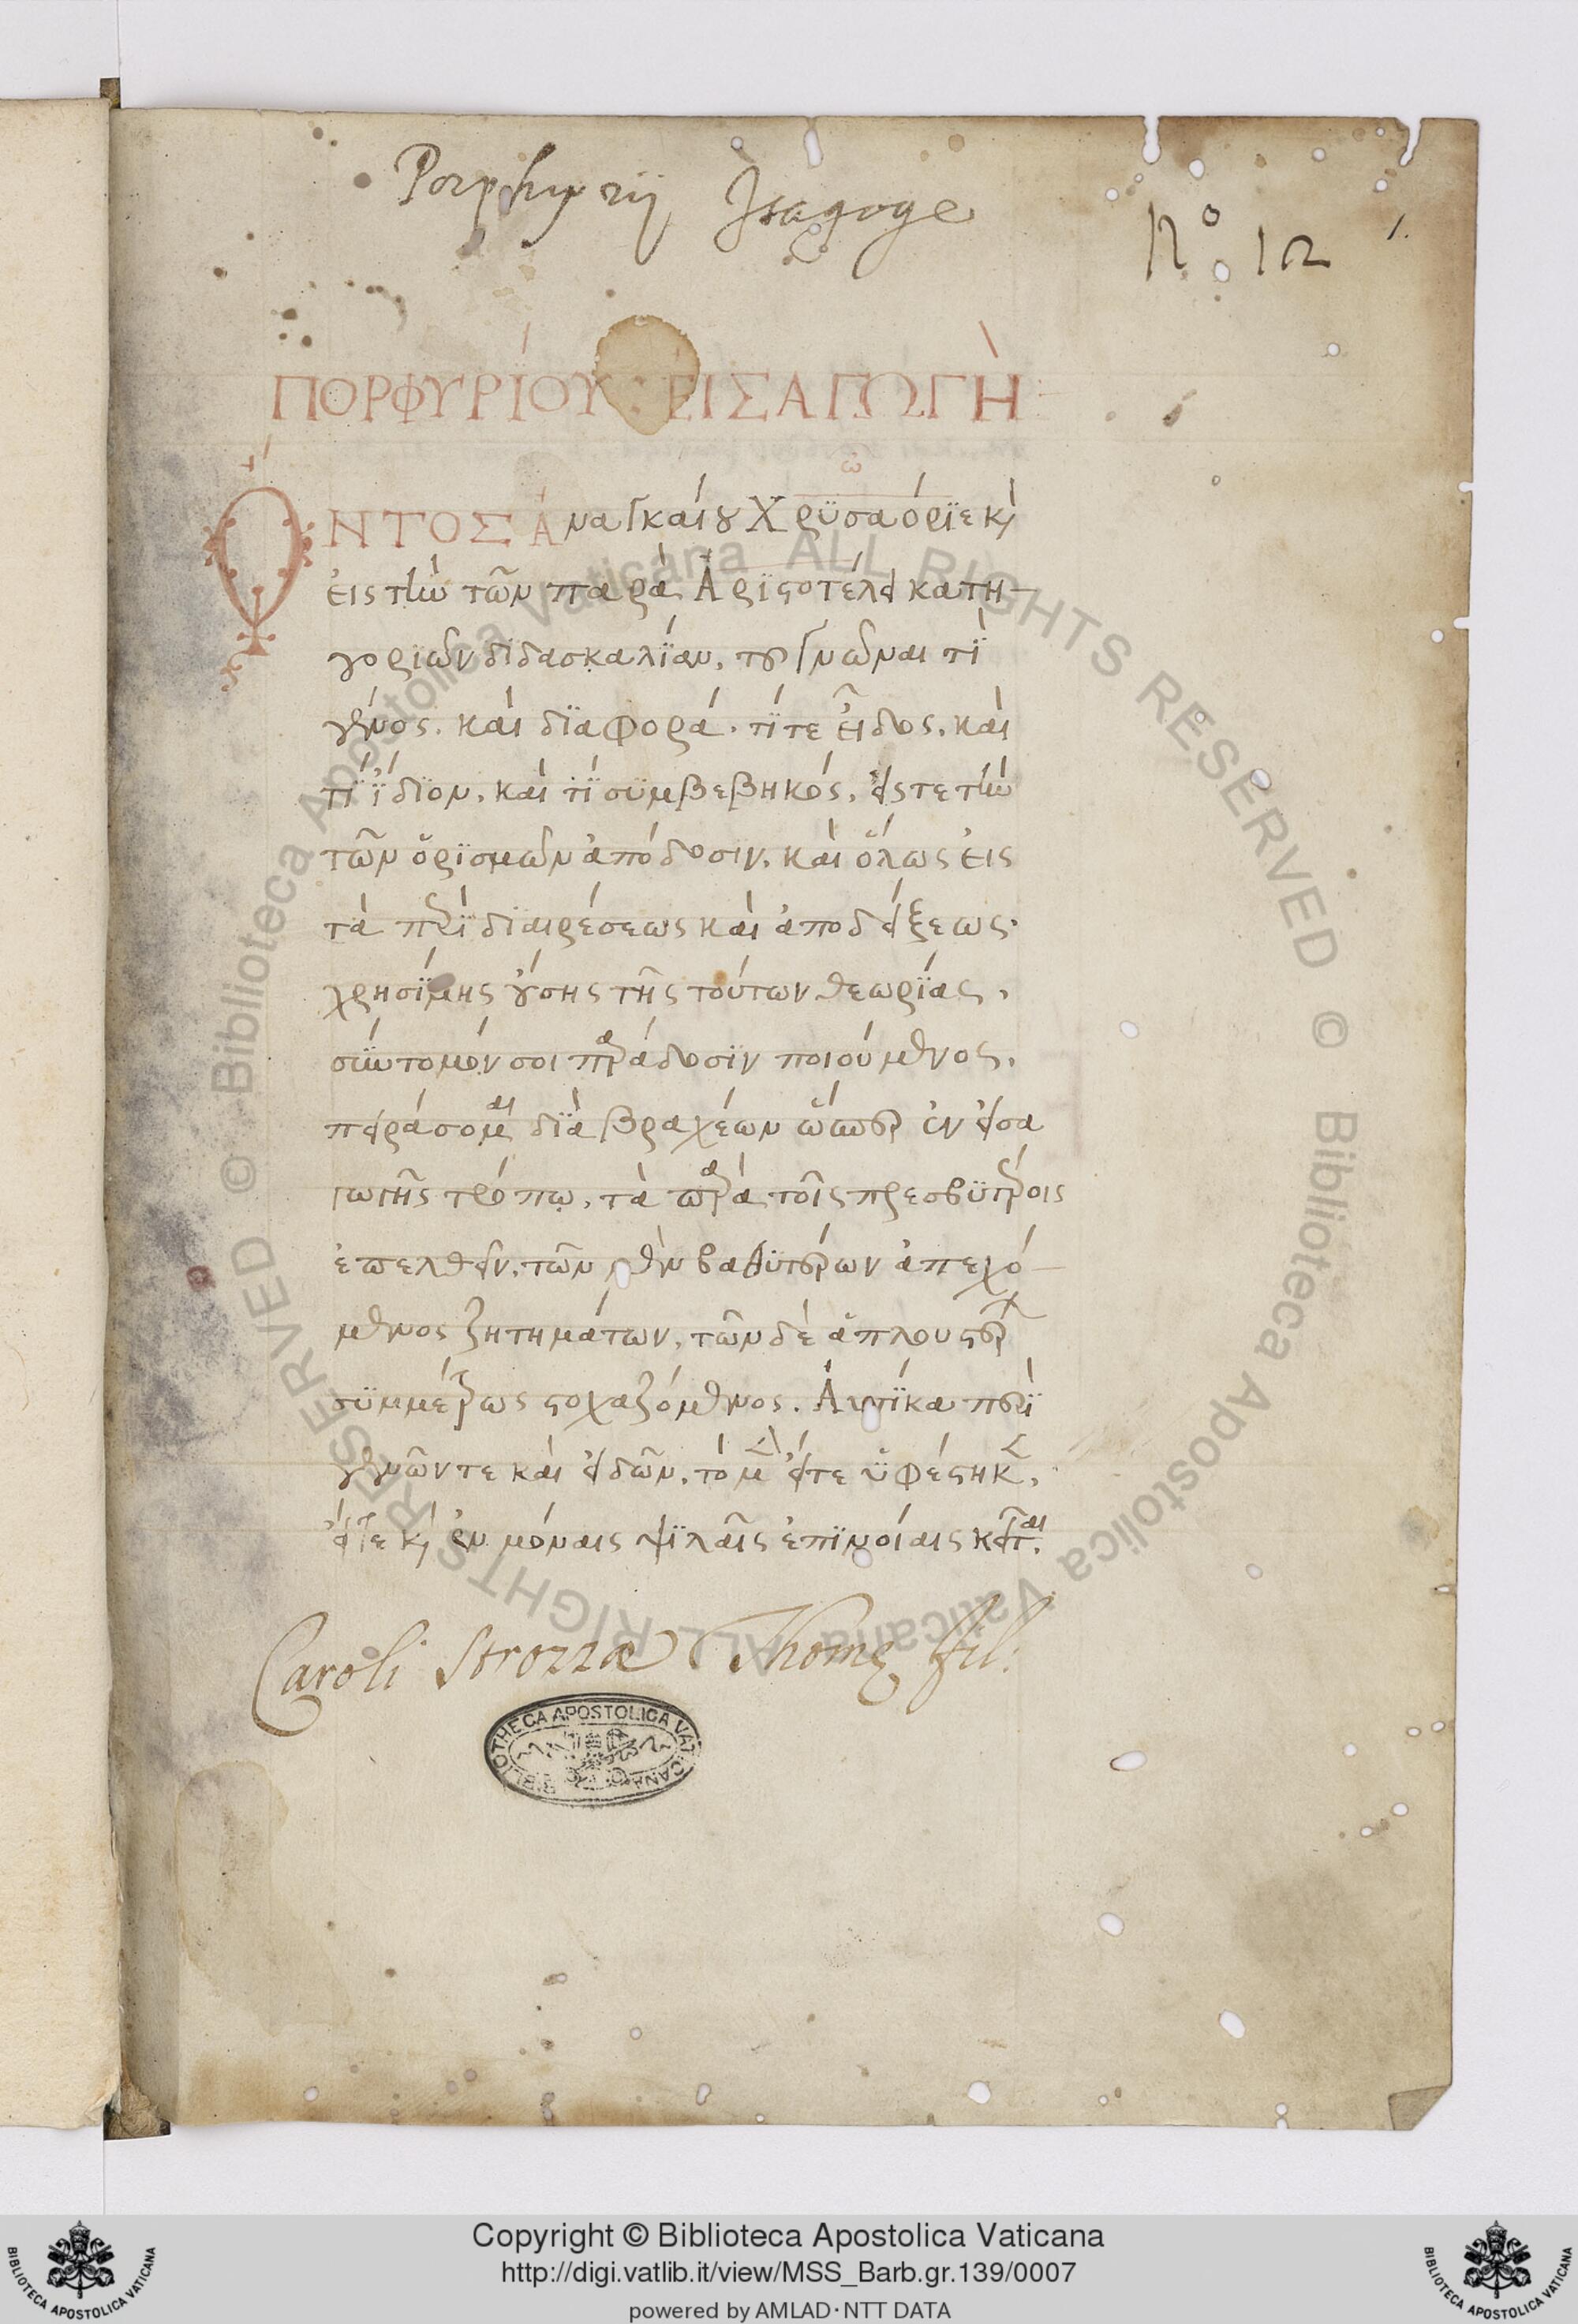 Porphyrij Isagoge
Nº 12
1.
ΠΟΡΦΥΡΊΟΥ : ΕΙΣΑΓΩΓῊ
ὌΝΤΟΣ Ἀναγκαίου Χρϋσαόρϊε κὶ
ἐις τὴν τῶν παρὰ Ἀρϊστοτέλει κατη-
γορϊῶν δϊδασκαλΐαν, τοῦ γνῶναι τΐ
γένος. καὶ δϊαφορά. τΐ τε εἶδος. καὶ
τΐ ἴδϊον. καὶ τΐ σϋμβεβηκός. εἴς τε τὴν
τῶν ὁρϊσμῶν ἀπόδοσϊν. καὶ ὅλως ἐις
τὰ περὶ δϊαιρέσεως καὶ ἀποδείξεως.
χρησΐμης οὔσης τῆς τούτων θεωρΐας,
σύντομόν σοι παράδοσϊν ποιούμενος.
πειράσομαι δϊὰ βραχέων ὥσπερ ἐν εἰσα
γωγῆς τρόπῳ, τὰ παρὰ τοῖς πρεσβϋτέροις
ἐπελθεῖν. τῶν μὲν βαθϋτέρων ἀπεχό-
μενος ζητημάτων, τῶν δὲ ἁπλουστέρων
σϋμμέτρως στοχαζόμενος. Ἀυτΐκα περὶ
γενῶν τε καὶ εἰδῶν. τὸ μὲν εἴτε ὑφέστηκεν,
εἴτε κὶ ἐν μόναις ψϊλαῖς ἐπϊνοίαις κεῖται.
Caroli Strozzæ Thomę fil:
BIBLIOTHECA APOSTOLICA VATICANA
© Biblioteca Apostolica Vaticana ALL RIGHTS RESERVED © Biblioteca Apostolica Vaticana ALL RIGHTS RESERVED
Copyright © Biblioteca Apostolica Vaticana
http://digi.vatlib.it/view/MSS_Barb.gr.139/0007
powered by AMLAD·NTT DATA
BIBLIOTECA APOSTOLICA VATICANA
BIBLIOTECA APOSTOLICA VATICANA